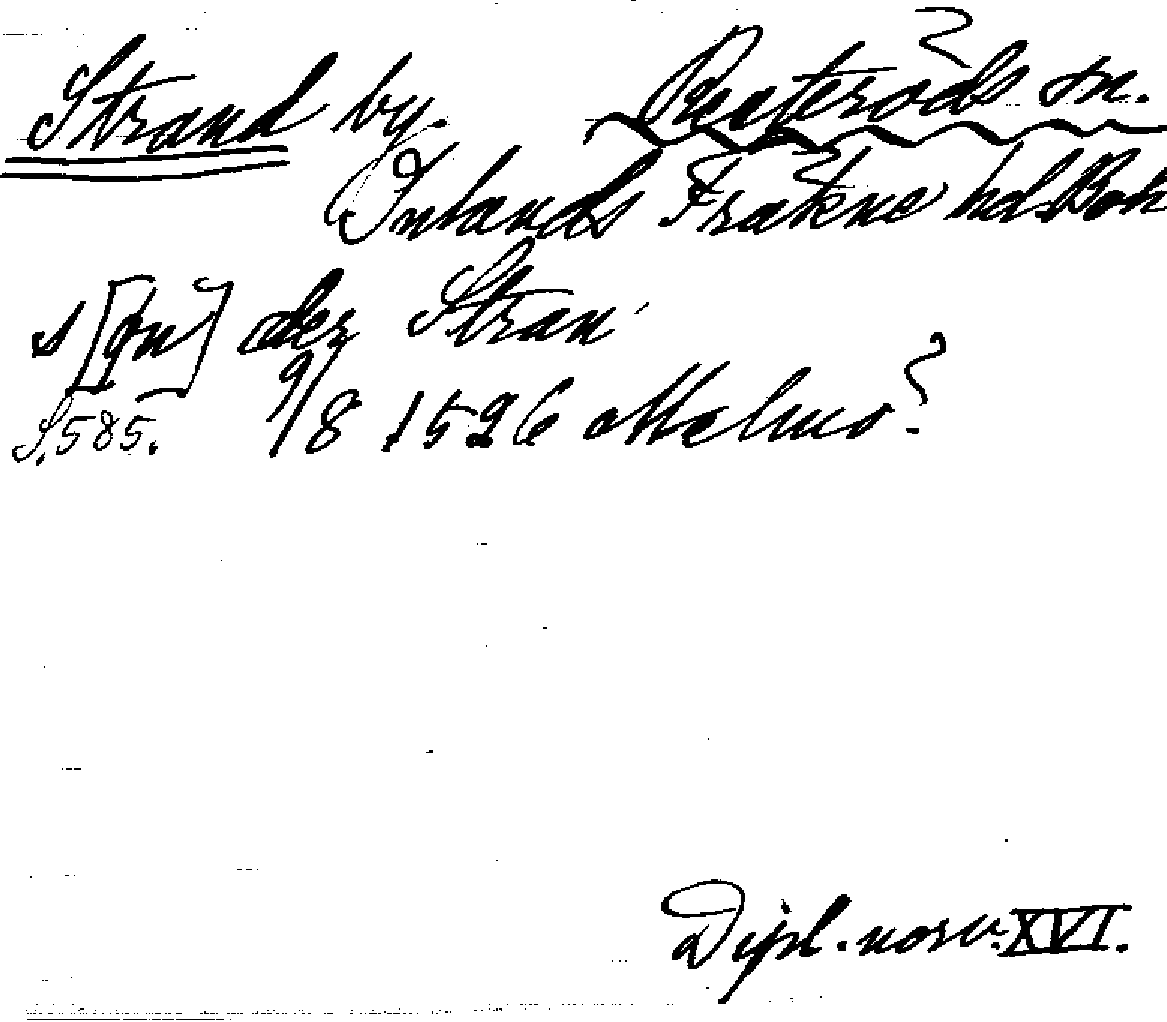 Strand by. Resteröds sn.
Inlands Fräkne hd. Boh
s [ɔn] der Stran
S. 585. 9/8 1526 Malmö?
Dipl. norv. XVI.